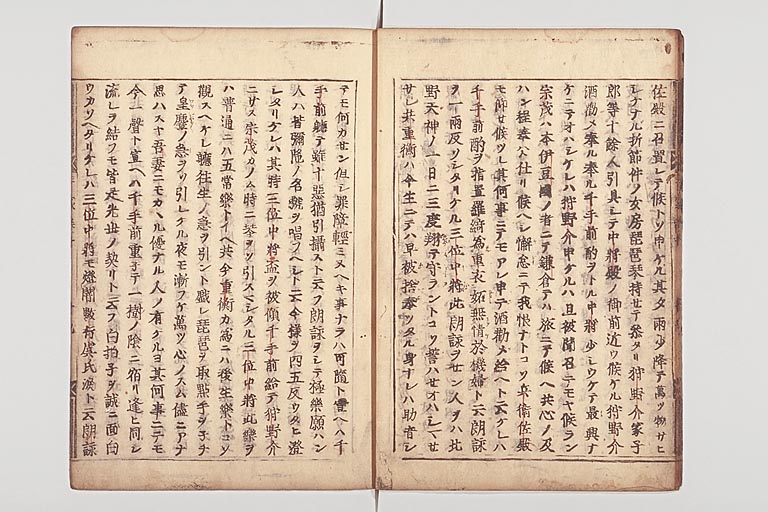 佐殿ニ召置レテ候トソ申ケル其夕雨少降テ萬ツ物サヒ
シケナル折節件ノ女房琵琶琴持セテ参タリ狩野介家子
郎等十餘人引具シテ中将殿ノ御前近ウ候ケル狩野介
酒勸メ奉ル千手前酌ヲトル中将少シウケテ最興ナ
ケニテオハシケレハ狩野介申ケルハ且被聞召テモヤ候ラン
宗茂ハ本伊豆國ノ者ニテ鎌倉テハ旅ニテ候ヘ共心ノ及
ハン程奉公仕リ候ヘシ懈怠ニテ我恨ナトコソ兵衛佐殿
モ仰セ候ツレ其何事ニテモアレ申テ酒勸メ給ヘト云ケレハ
千手前酌ヲ指置羅綺為重衣妬無情於機婦ト云朗詠
ヲ一兩反シタリケル三位中将此朗詠ヲセン人ヲハ北
野天神ノ一日ニ三度翔テ守ラントコソ誓ハセオハシマセ
サレ共重衡ハ今生ニテハ早被捨奉ツタル身ナレハ助音シ
テモ何カセン但シ罪障輕ミヌヘキ事ナラハ可隨ト曽ヘハ千
手前軈テ雖十惡猶引攝スト云フ朗詠ヲシテ極樂願ハン
人ハ皆彌陀ノ名號ヲ唱フヘシト云今様ヲ四五反ウタヒ澄
シタリケレハ其時三位中将盃ヲ被傾千手前給テ狩野介
ニサス宗茂カノム時ニ琴ヲソ引スマシタル三位中将此樂ヲ
ハ普通ニハ五常樂トイヘ共今重衡カ為ニハ後生樂トコソ
觀スヘケレ軈往生ノ急ヲ引ント戯レ琵琶ヲ取點手ヲネチ
テ皇麞ノ急ヲソ引レケル夜モ漸フケ萬ツ心ノスム儘ニアナ
思ハスヤ吾妻ニモカヽル優ナル人ノ有ケルヨ其何事ニテモ
今一聲ト宣ヘハ千手前重テ一樹ノ陰ニ宿リ逢ヒ同シ
流レヲ結フモ皆是先世ノ契リト云フ白拍子ヲ誠ニ面白
ウカソヘタリケレハ三位中将モ燈闇數行虞氏涙ト云朗詠